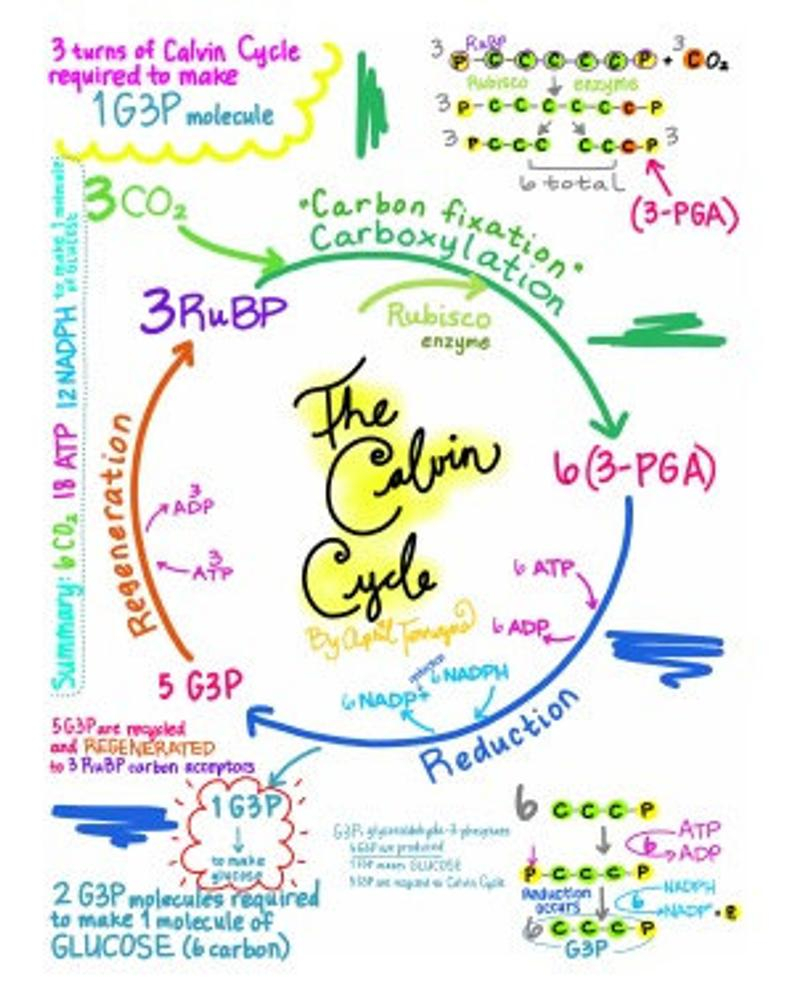 3 turns of Calvin Cycle
required to make
1 G3P molecule
3 RuBP
P-C-C-C-C-C-P + 3 CO₂
Rubisco enzyme
3 P-C-C-C-C-C-C-P
3 P-C-C-C C-C-C-P 3
6 total
(3-PGA)
3CO₂
"Carbon fixation"
Carboxylation
Rubisco
enzyme
3RuBP
6(3-PGA)
The
Calvin
Cycle
By April
Regeneration
3
ADP
3
ATP
6 ATP
6 ADP
6 NADPH
6 NADP+
Reduction
5 G3P
Summary: 6 CO₂ 18 ATP 12 NADPH to make 1 molecule
of GLUCOSE
5 G3P are recycled
and REGENERATED
to 3 RuBP carbon acceptors
1 G3P
to make
glucose
2 G3P molecules required
to make 1 molecule of
GLUCOSE (6 carbon)
G3P: glyceraldehyde-3-phosphate
6 G3P are produced
1 G3P makes GLUCOSE
5 G3P are recycled to Calvin Cycle
6 C-C-C-P
6 ATP
ADP
P-C-C-C-P
Reduction
occurs
6 NADPH
NADP+ + P
6 C-C-C-P
G3P